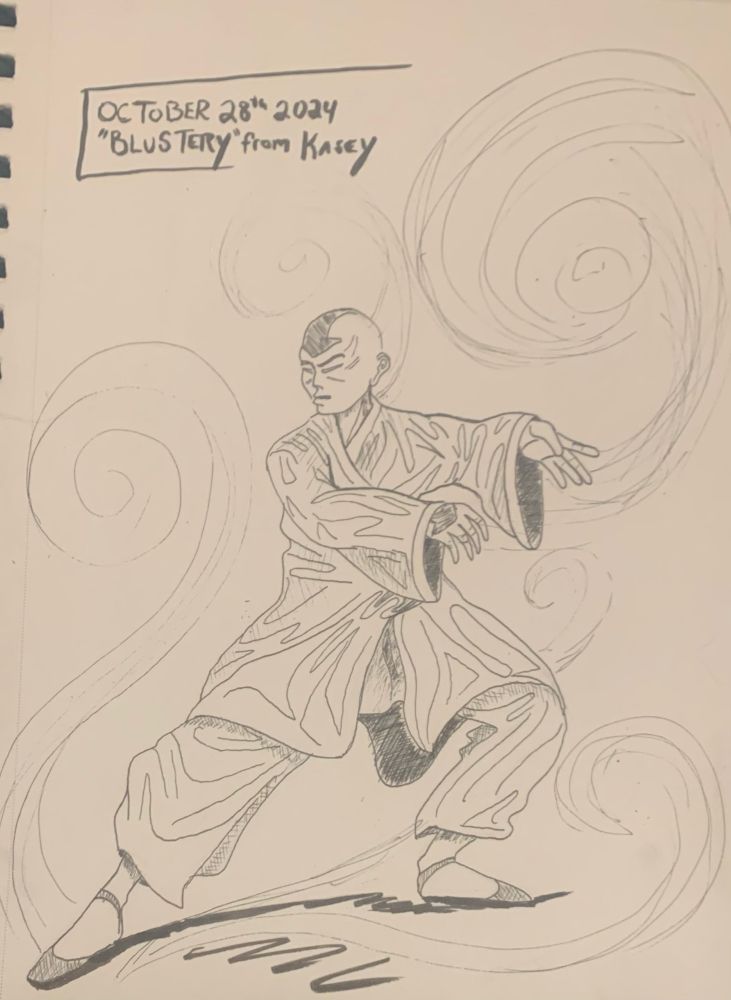 OCTOBER 28th 2024
"BLUSTERY" from KASEY